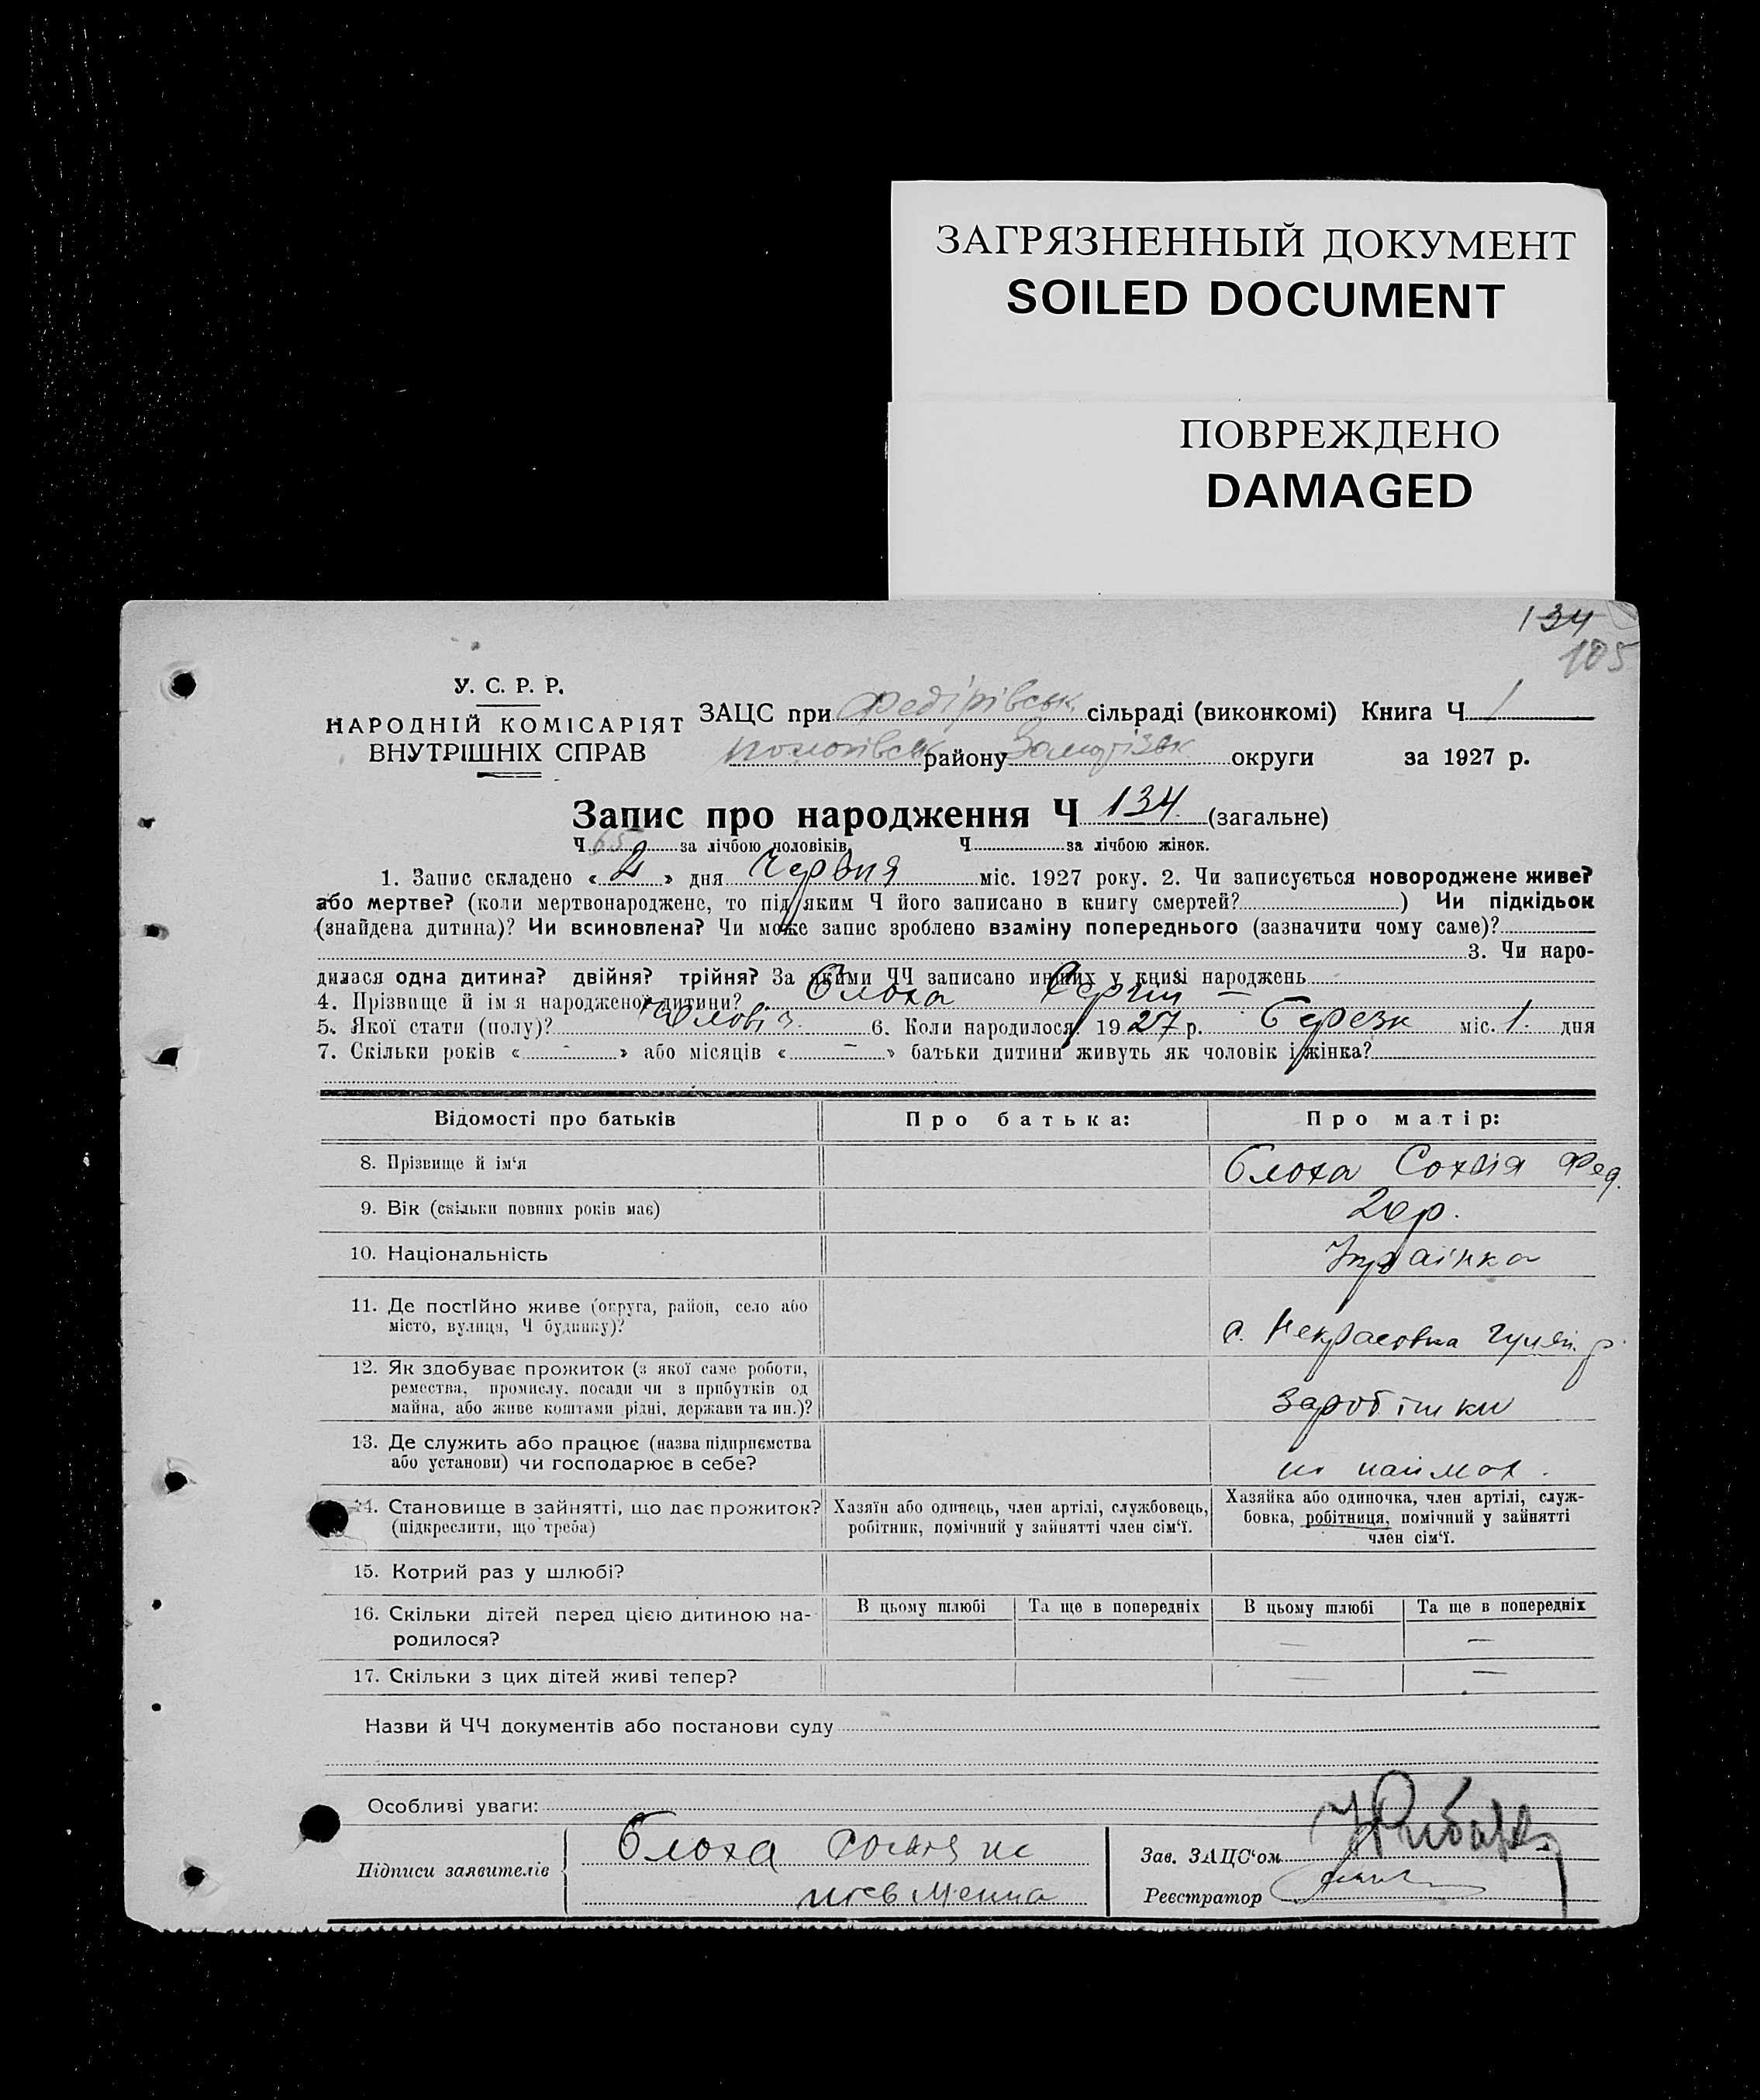 ЗАГРЯЗНЕННЫЙ ДОКУМЕНТ
SOILED DOCUMENT
ПОВРЕЖДЕНО
DAMAGED
134
105
У. С. Р. Р.
НАРОДНІЙ КОМІСАРІЯТ
ВНУТРІШНІХ СПРАВ
ЗАЦС при Федірівськ сільраді (виконкомі) Книга Ч 1
району округи за 1927 р.
Запис про народження Ч 134 (загальне)
Ч 65 за лічбою чоловіків, Ч за лічбою жінок.
1. Запис складено « 2 » дня Червня міс. 1927 року. 2. Чи записується новороджене живе?
або мертве? (коли мертвонароджене, то під яким Ч його записано в книгу смертей? ) Чи підкідьок
(знайдена дитина)? Чи всиновлена? Чи може запис зроблено взаміну попереднього (зазначити чому саме)?
3. Чи наро-
дилася одна дитина? двійня? трійня? За якими ЧЧ записано инших у книзі народжень
4. Прізвище й ім я народженої дитини? Блоха Сергій —
5. Якої стати (полу)? Чоловіч. 6. Коли народилося 1927 р. Березн міс. 1. дня
7. Скільки років « - » або місяців « - » батьки дитини живуть як чоловік і жінка?
Відомості про батьків Про батька: Про матір:
8. Прізвище й ім‘я Блоха Сохвія Фед.
9. Вік (скільки повних років має) 20 р.
10. Національність Українка
11. Де постійно живе (округа, район, село або
місто, вулиця, Ч будинку)? с. Некрасовка Гуляй. р.
12. Як здобуває прожиток (з якої саме роботи,
ремества, промислу, посади чи з прибутків од
майна, або живе коштами рідні, держави та ин.)? Заробітки
13. Де служить або працює (назва підприємства
або установи) чи господарює в себе? по наймах.
14. Становище в зайнятті, що дає прожиток?
(підкреслити, що треба)
Хазяїн або одинець, член артілі, службовець,
робітник, помічний у зайнятті член сім‘ї.
Хазяйка або одиночка, член артілі, служ-
бовка, робітниця, помічний у зайнятті
член сім‘ї.
15. Котрий раз у шлюбі?
16. Скільки дітей перед цією дитиною на-
родилося?
В цьому шлюбі Та ще в попередніх В цьому шлюбі Та ще в попередніх
— —
17. Скільки з цих дітей живі тепер? — —
Назви й ЧЧ документів або постанови суду
Особливі уваги:
Підписи заявителів Блоха
Зав. ЗАЦС‘ом
Реєстратор